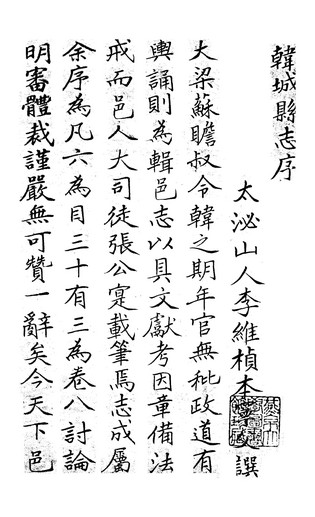 韓城縣志序
太泌山人李維楨本寧父譔
大梁蘇瞻叔令韓之期年官無秕政道有
輿誦則為輯邑志以具文獻考因章備法
戒而邑人大司徒張公寔載筆焉志成屬
余序為凡六為目三十有三為卷八討論
明審體裁謹嚴無可贊一辭矣今天下邑